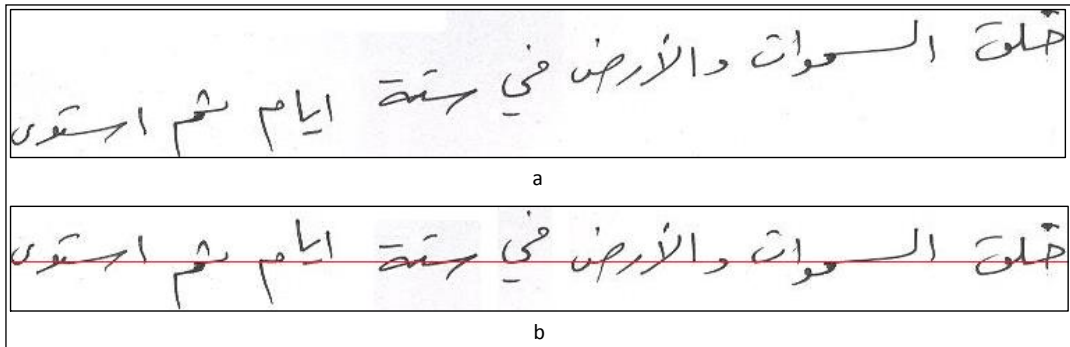 خلق السموات والأرض في ستة ايام ثم استوى
a
خلق السموات والأرض في ستة ايام ثم استوى
b